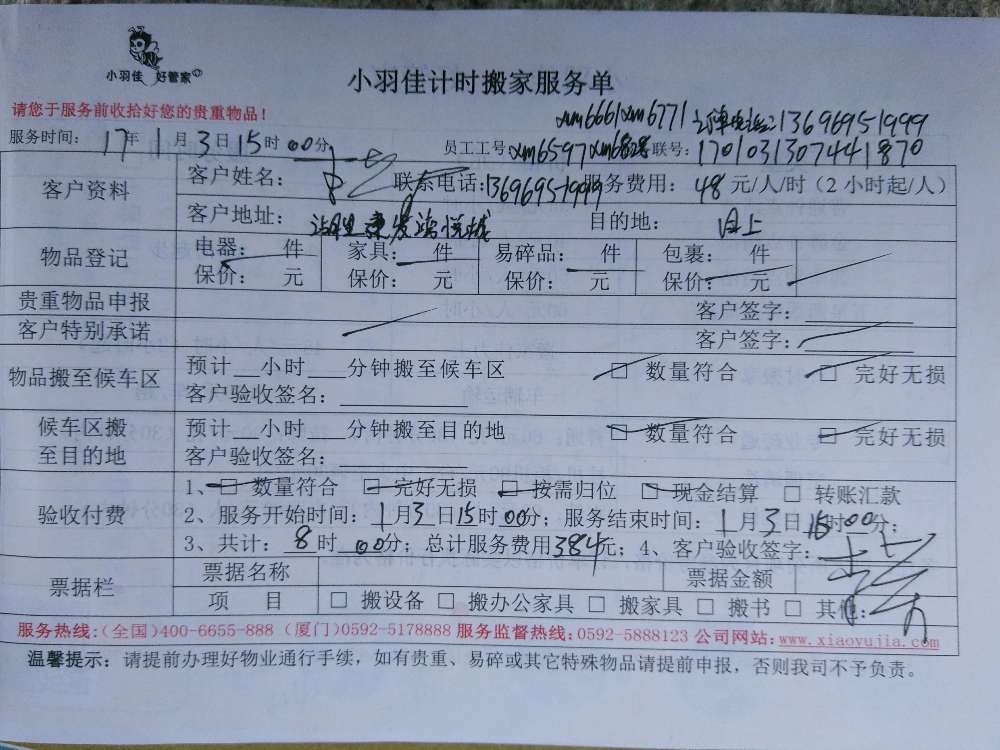 小羽佳 好管家
小羽佳计时搬家服务单
请您于服务前收拾好您的贵重物品！
xm6661 xm6771 13696951999
服务时间： 17年 1月 3日 15时 00分
员工工号 xm6597 xm6828 联号： 17010313074441870
客户资料
客户姓名： 联系电话：13696951999 服务费用： 48 元/人/时（2小时起/人）
客户地址： 湖里 目的地：
物品登记
电器： 件 家具： 件 易碎品： 件 包裹： 件
保价： 元 保价： 元 保价： 元 保价： 元
贵重物品申报 客户签字：
客户特别承诺 客户签字：
物品搬至候车区
预计__小时___分钟搬至候车区 □ 数量符合 □ 完好无损
客户验收签名：
候车区搬至目的地
预计__小时___分钟搬至目的地 □ 数量符合 □ 完好无损
客户验收签名：
验收付费
1、□ 数量符合 □ 完好无损 □ 按需归位 □ 现金结算 □ 转账汇款
2、服务开始时间：1月3日15时00分；服务结束时间：1月3日 时00分；
3、共计： 8 时 00分；总计服务费用384元；4、客户验收签字：
票据栏
票据名称 票据金额
项 目 □ 搬设备 □ 搬办公家具 □ 搬家具 □ 搬书 □ 其他：
服务热线：（全国）400-6655-888（厦门）0592-5178888 服务监督热线：0592-5888123 公司网站：www.xiaoyujia.com
温馨提示：请提前办理好物业通行手续，如有贵重、易碎或其它特殊物品请提前申报，否则我司不予负责。